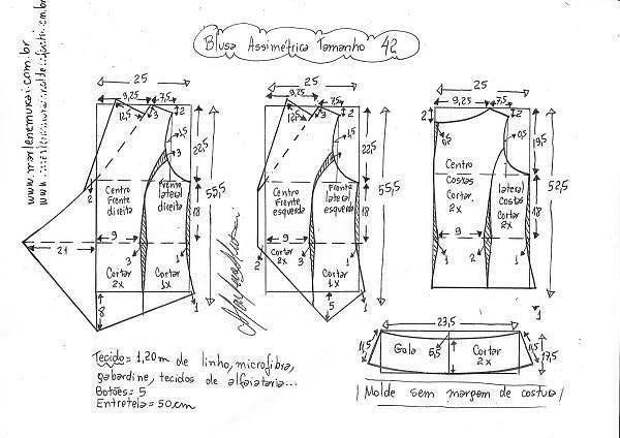 Blusa Assimétrica Tamanho 42
www.marlenemukai.com.br
25
9,25 7,5
12,5 3 2
1,5
3
22,5
2
Centro
Frente
direita
Frente
lateral
direita
18
55,5
9
21
3
1
Cortar
2x
Cortar
1x
8
1
25
9,25 7,5
12,5 3 2
1,5
3
22,5
Centro
Frente
esquerda
Frente
lateral
esquerda
18
55,5
9
2
3
1
Cortar
2x
Cortar
1x
5
1
25
9,25 7,5
2 2
0,5
19,5
Centro
Costas
Cortar
2x
lateral
Costas
Cortar
2x
18
52,5
9
1 2 1
1
23,5
11,5 Gola 6,5 Cortar
2x
11,5 17,5
Tecido = 1,20m de linho, microfibra,
gabardine, tecidos de alfaiataria...
Botões = 5
Entretela = 50cm
Molde sem margem de costura